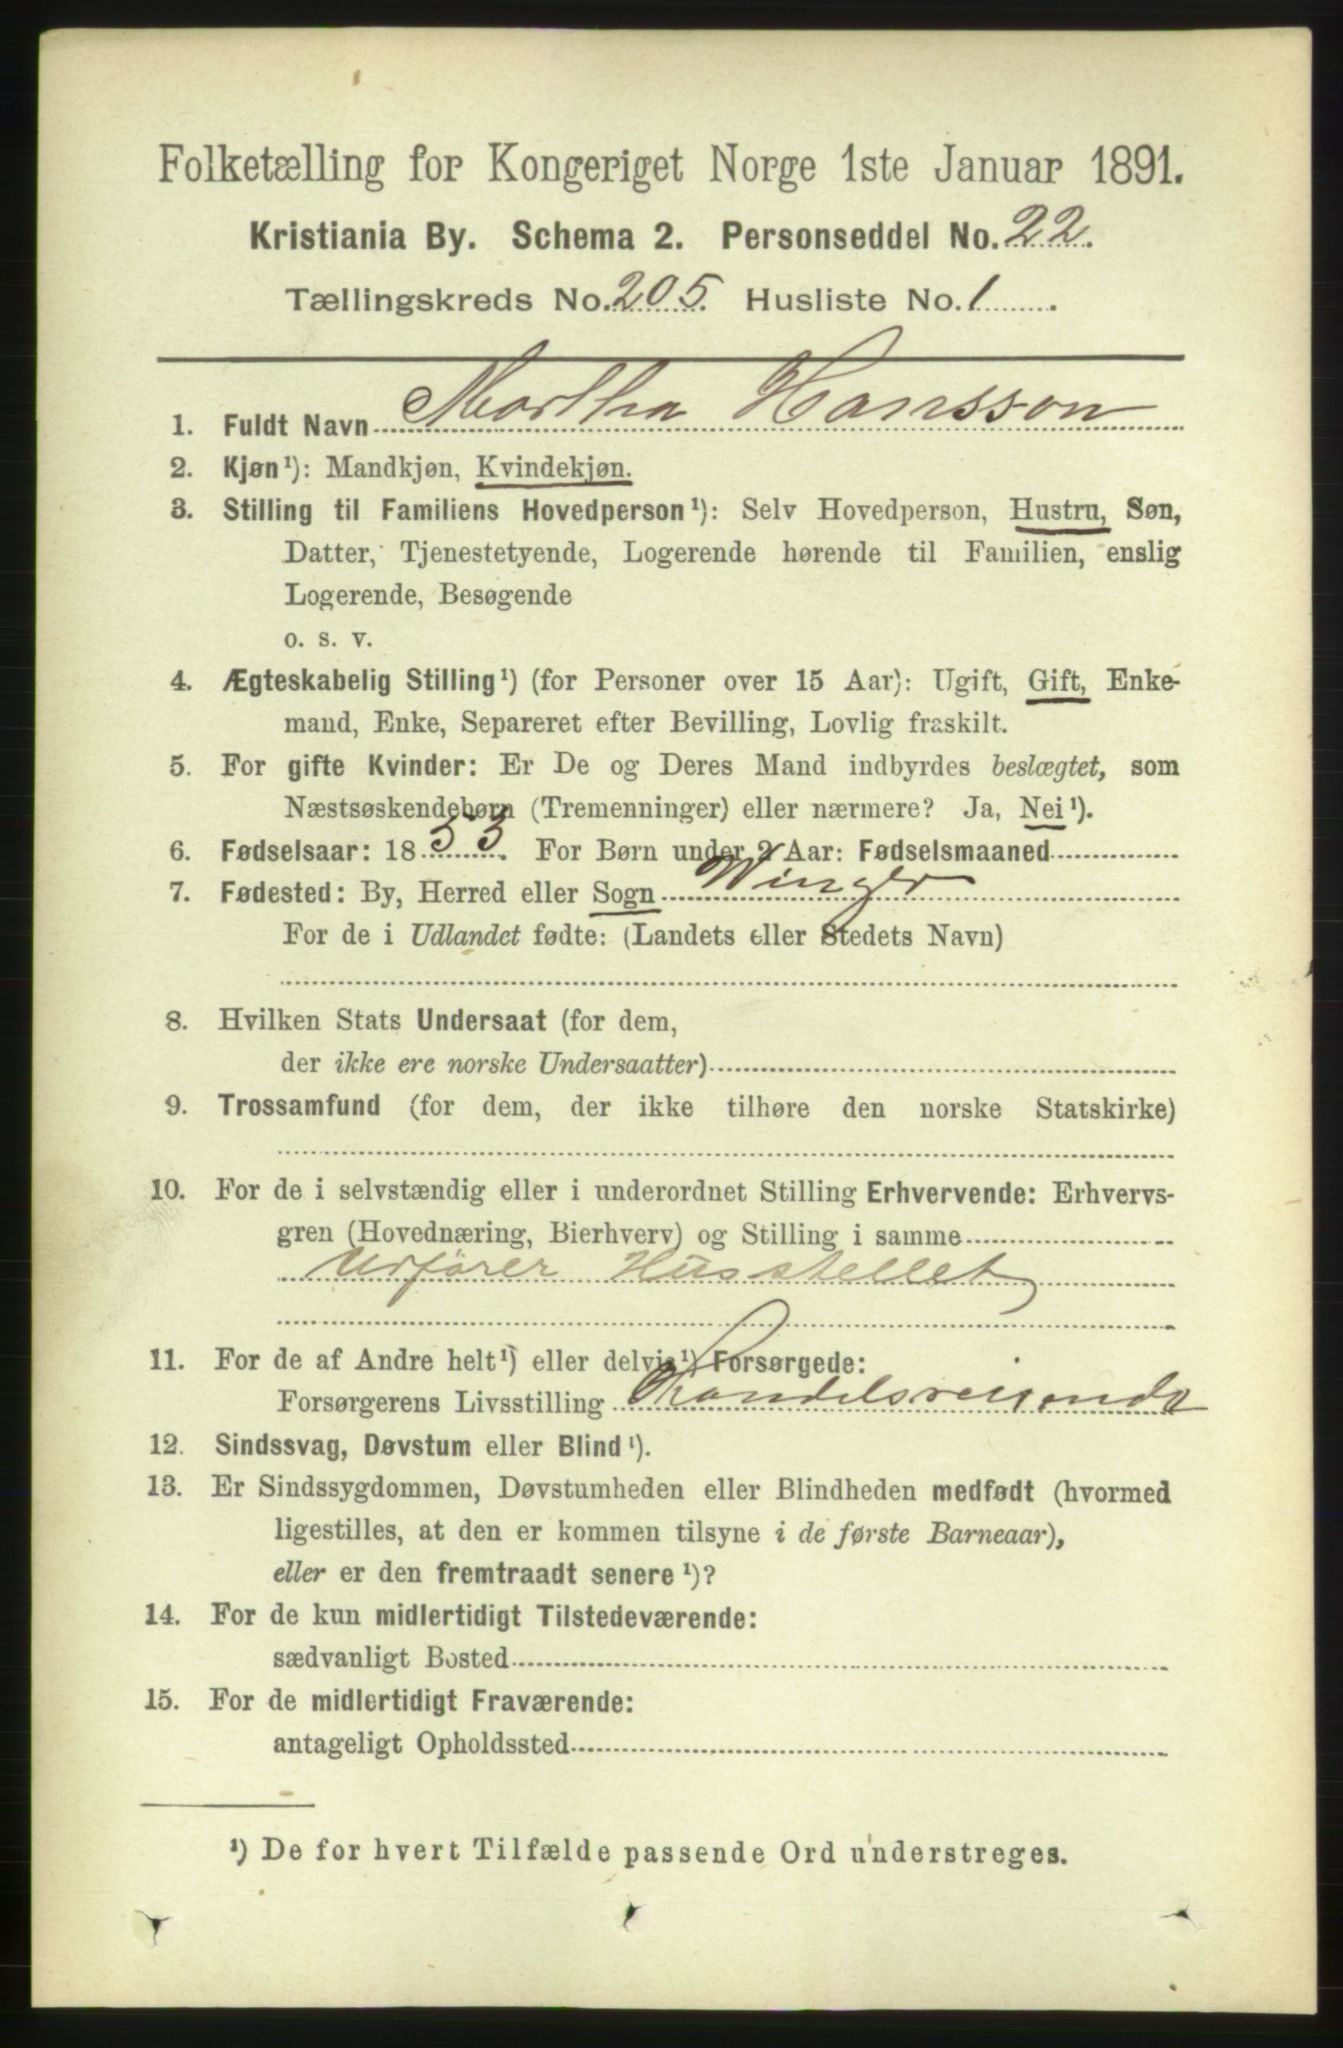 Folketælling for Kongeriget Norge 1ste Januar 1891.
Kristiania By. Schema 2. Personseddel No. 22.
Tællingskreds No. 205. Husliste No. 1.
1. Fuldt Navn Martha Hansson
2. Kjøn¹): Mandkjøn, Kvindekjøn.
3. Stilling til Familiens Hovedperson¹): Selv Hovedperson, Hustru, Søn,
Datter, Tjenestetyende, Logerende hørende til Familien, enslig
Logerende, Besøgende
o. s. v.
4. Ægteskabelig Stilling¹) (for Personer over 15 Aar): Ugift, Gift, Enke-
mand, Enke, Separeret efter Bevilling, Lovlig fraskilt.
5. For gifte Kvinder: Er De og Deres Mand indbyrdes beslægtet, som
Næstsøskendebørn (Tremenninger) eller nærmere? Ja, Nei¹).
6. Fødselsaar: 1853. For Børn under 2 Aar: Fødselsmaaned
7. Fødested: By, Herred eller Sogn Winger
For de i Udlandet fødte: (Landets eller Stedets Navn)
8. Hvilken Stats Undersaat (for dem,
der ikke ere norske Undersaatter)
9. Trossamfund (for dem, der ikke tilhøre den norske Statskirke)
10. For de i selvstændig eller i underordnet Stilling Erhvervende: Erhvervs-
gren (Hovednæring, Bierhverv) og Stilling i samme
Udfører Husstellet
11. For de af Andre helt¹) eller delvis¹) Forsørgede:
Forsørgerens Livsstilling Handelsreisende
12. Sindssvag, Døvstum eller Blind¹).
13. Er Sindssygdommen, Døvstumheden eller Blindheden medfødt (hvormed
ligestilles, at den er kommen tilsyne i de første Barneaar),
eller er den fremtraadt senere¹)?
14. For de kun midlertidigt Tilstedeværende:
sædvanligt Bosted
15. For de midlertidigt Fraværende:
antageligt Opholdssted
¹) De for hvert Tilfælde passende Ord understreges.